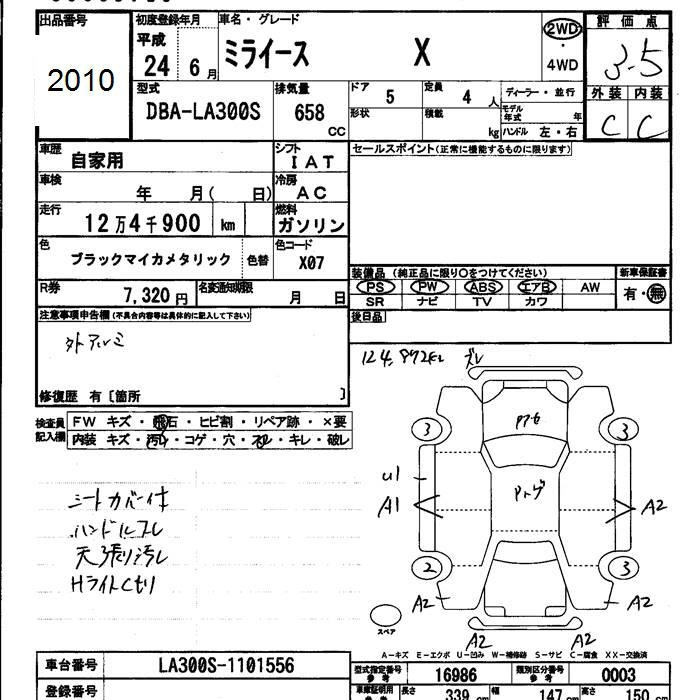 出品番号
2010
初度登録年月
平成
24 6 月
車名・グレード
ミライース X
2WD
・
4WD
評価点
3.5
外装 内装
C C
型式
DBA-LA300S
排気量
658
CC
ドア 5
定員 4 人
形状
積載 kg
ディーラー・並行
モデル年式 年
ハンドル 左・右
車歴
自家用
シフト
IAT
セールスポイント(正常に機能するものに限ります)
車検
年 月( 日)
冷房
AC
走行
12万4千900 km
燃料
ガソリン
色
ブラックマイカメタリック
色替
色コード
X07
装備品 (純正品に限り○をつけてください)
新車保証書
PS PW ABS エアB AW
SR ナビ TV カワ
有・無
R券
7,320円
名変通知期限
月 日
後日品
注意事項申告欄 (不具合内容等は具体的に記入して下さい)
外アルミ
修復歴 有 [箇所 ]
124,892km ズレ
検査員
記入欄
FW キズ・飛石・ヒビ割・リペア跡・×要
内装 キズ・汚レ・コゲ・穴・スレ・キレ・破レ
3 3
U1
A1 A2
2 3
A2 A2
A2 A2
シートカバー付
ハンドルスレ
天張り汚レ
スペア
A-キズ E-エクボ U-凹み W-補修跡 S-サビ C-腐食 XX-交換済
車台番号
LA300S-1101556
登録番号
型式指定番号
参考
16986
類別区分番号
参考
0003
車庫証明用
参考
長さ 339 cm
幅 147 cm
高さ 150 cm